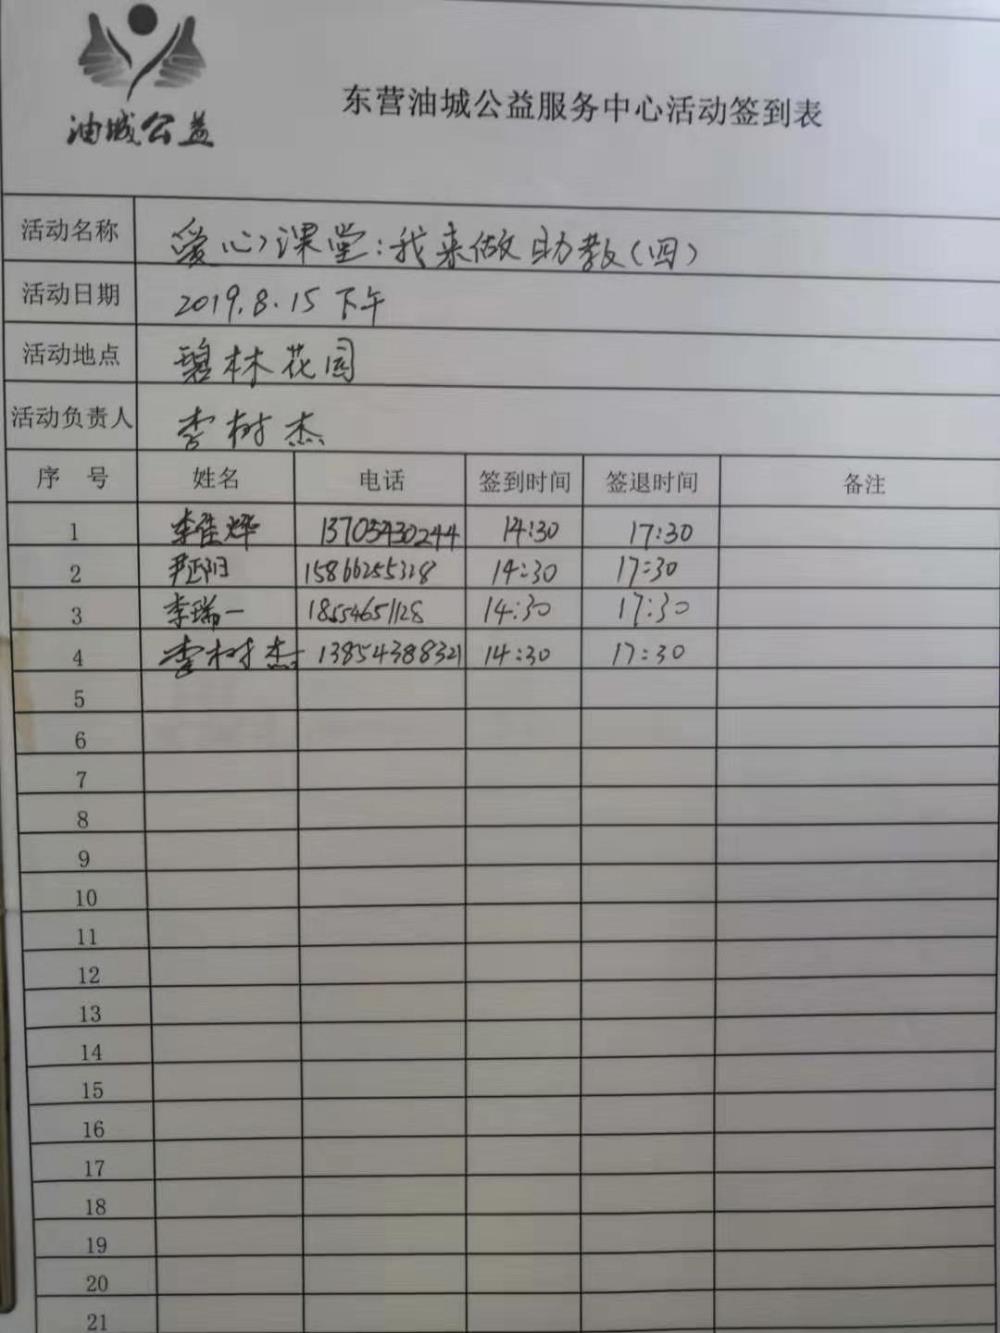 油城公益
东营油城公益服务中心活动签到表
活动名称 爱心课堂:我来做助教(四)
活动日期 2019.8.15 下午
活动地点 碧林花园
活动负责人 李树杰
序 号 姓名 电话 签到时间 签退时间 备注
1 李佳烨 13705430244 14:30 17:30
2 尹正阳 15866255328 14:30 17:30
3 李瑞一 18554651128 14:30 17:30
4 李树杰 13854388321 14:30 17:30
5
6
7
8
9
10
11
12
13
14
15
16
17
18
19
20
21